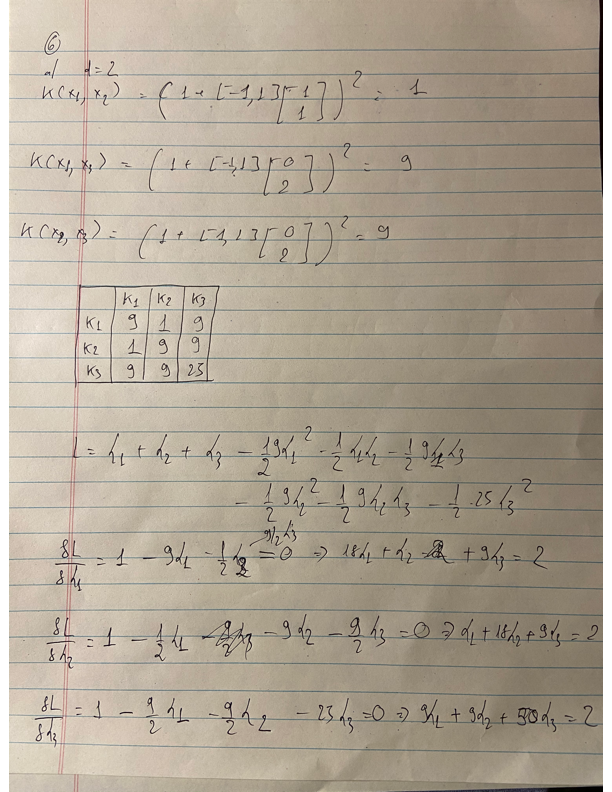 ⑥
a) d=2
K(x₁, x₂) = (1 + [-1, 1] [-1 1])² = 1
K(x₁, x₃) = (1 + [-1, 1] [0 2])² = 9
K(x₂, x₃) = (1 + [-1, 1] [0 2])² = 9
K₁ K₂ K₃
K₁ 9 1 9
K₂ 1 9 9
K₃ 9 9 25
L = α₁ + α₂ + α₃ - 1/2 9α₁² - 1/2 α₁α₂ - 1/2 9α₁α₃
- 1/2 9α₂² - 1/2 9α₂α₃ - 1/2 · 25α₃²
δL/δα₁ = 1 - 9α₁ - 1/2 α₂ - 9/2 α₃ = 0 ⇒ 18α₁ + α₂ + 9α₃ = 2
δL/δα₂ = 1 - 1/2 α₁ - 9α₂ - 9/2 α₃ = 0 ⇒ α₁ + 18α₂ + 9α₃ = 2
δL/δα₃ = 1 - 9/2 α₁ - 9/2 α₂ - 25α₃ = 0 ⇒ 9α₁ + 9α₂ + 50α₃ = 2